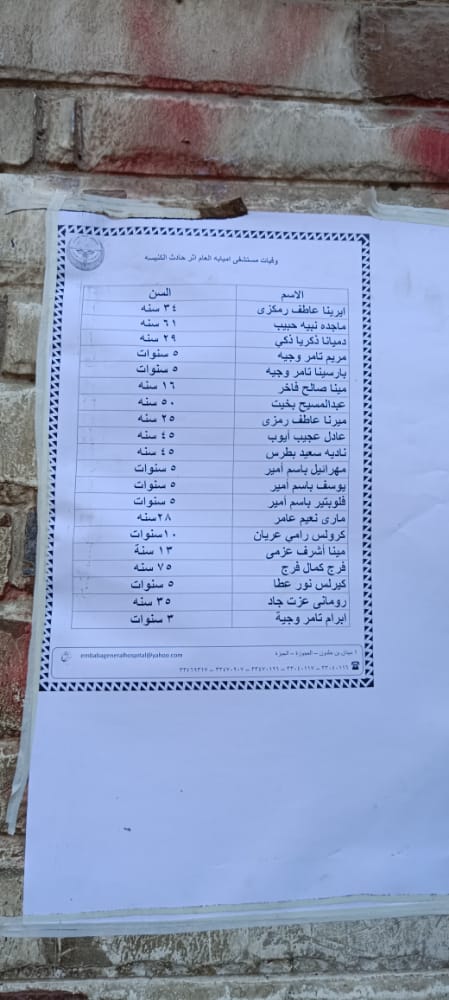 وفيات مستشفى امبابه العام اثر حادث الكنيسه
الاسم السن
ايرينا عاطف رمكزى ٣٤ سنه
ماجده نبيه حبيب ٦١ سنه
دميانا ذكريا ذكي ٢٩ سنه
مريم تامر وجيه ٥ سنوات
بارسينا تامر وجيه ٥ سنوات
مينا صالح فاخر ١٦ سنه
عبدالمسيح بخيت ٥٠ سنه
ميرنا عاطف رمزى ٢٥ سنه
عادل عجيب أيوب ٤٥ سنه
ناديه سعيد بطرس ٤٥ سنه
مهرائيل باسم أمير ٥ سنوات
يوسف باسم أمير ٥ سنوات
فلوبتير باسم أمير ٥ سنوات
مارى نعيم عامر ٢٨سنه
كرولس رامي عريان ١٠سنوات
مينا أشرف عزمى ١٣ سنة
فرج كمال فرج ٧٥ سنه
كيرلس نور عطا ٥ سنوات
رومانى عزت جاد ٣٥ سنه
ابرام تامر وجية ٣ سنوات
embabageneralhospital@yahoo.com
العجوزة – الجيزة